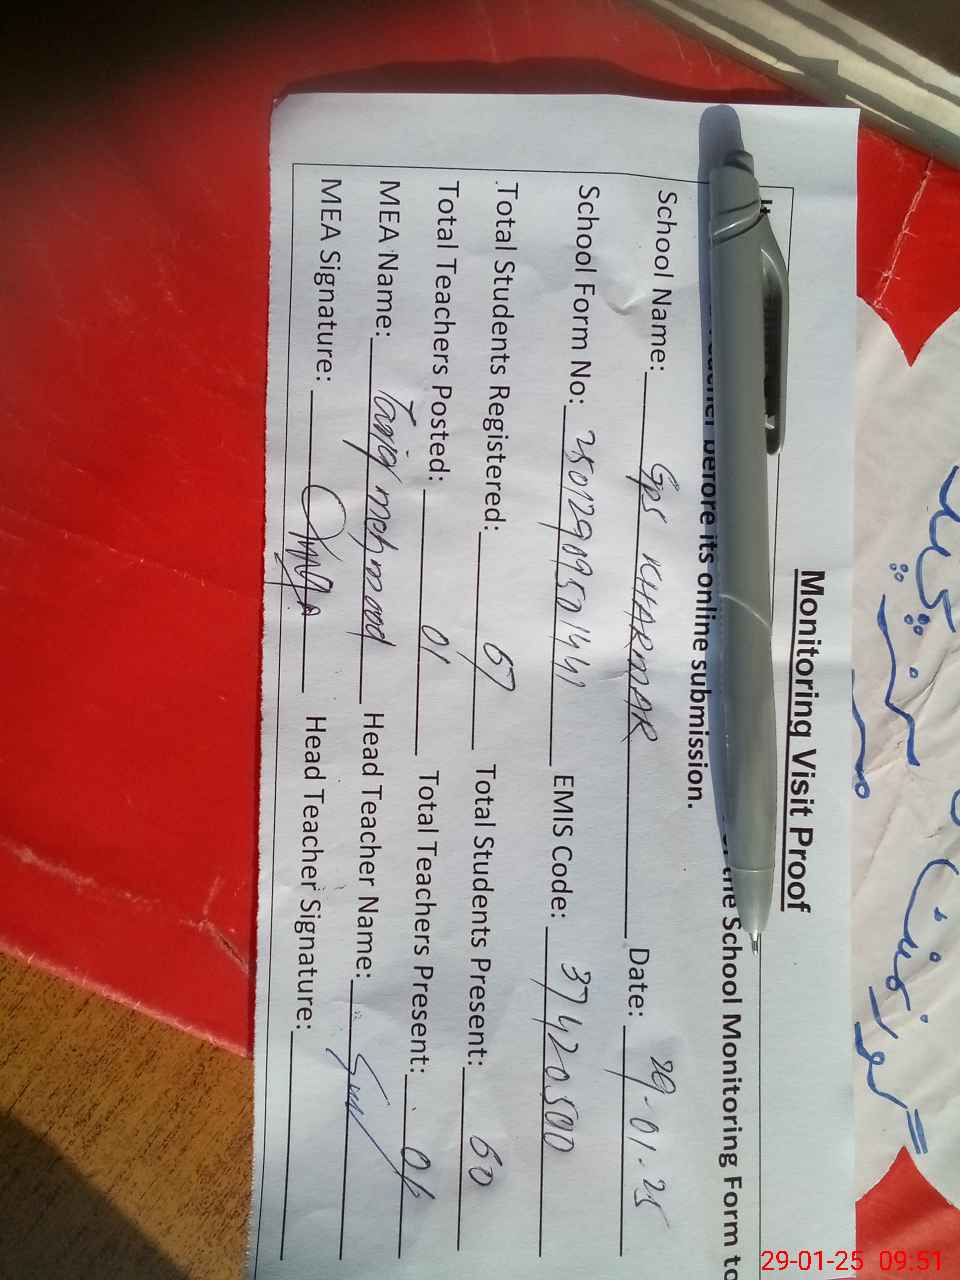 Monitoring Visit Proof
the School Monitoring Form to
before its online submission.
School Name: GPS KHARMAR Date: 29-01-25
School Form No: 25012909501441 EMIS Code: 37420500
Total Students Registered: 67 Total Students Present: 60
Total Teachers Posted: 01 Total Teachers Present: 01
MEA Name: Tariq mehmood Head Teacher Name:
MEA Signature: Head Teacher Signature:
گورنمنٹ
29-01-25 09:51